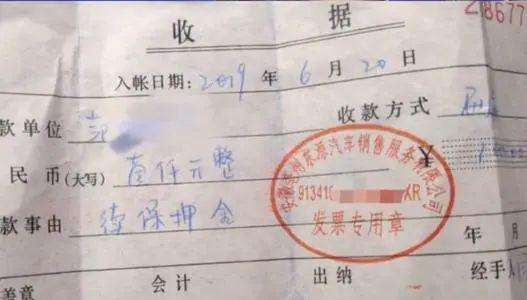 收 据
28677
入帐日期：2019 年 6 月 20 日
款单位
收款方式
民币(大写) 壹仟元整
¥
款事由 续保押金
汽车销售服务有限公司
91341 XR
发票专用章
年 月
盖章 会计 出纳 经手人